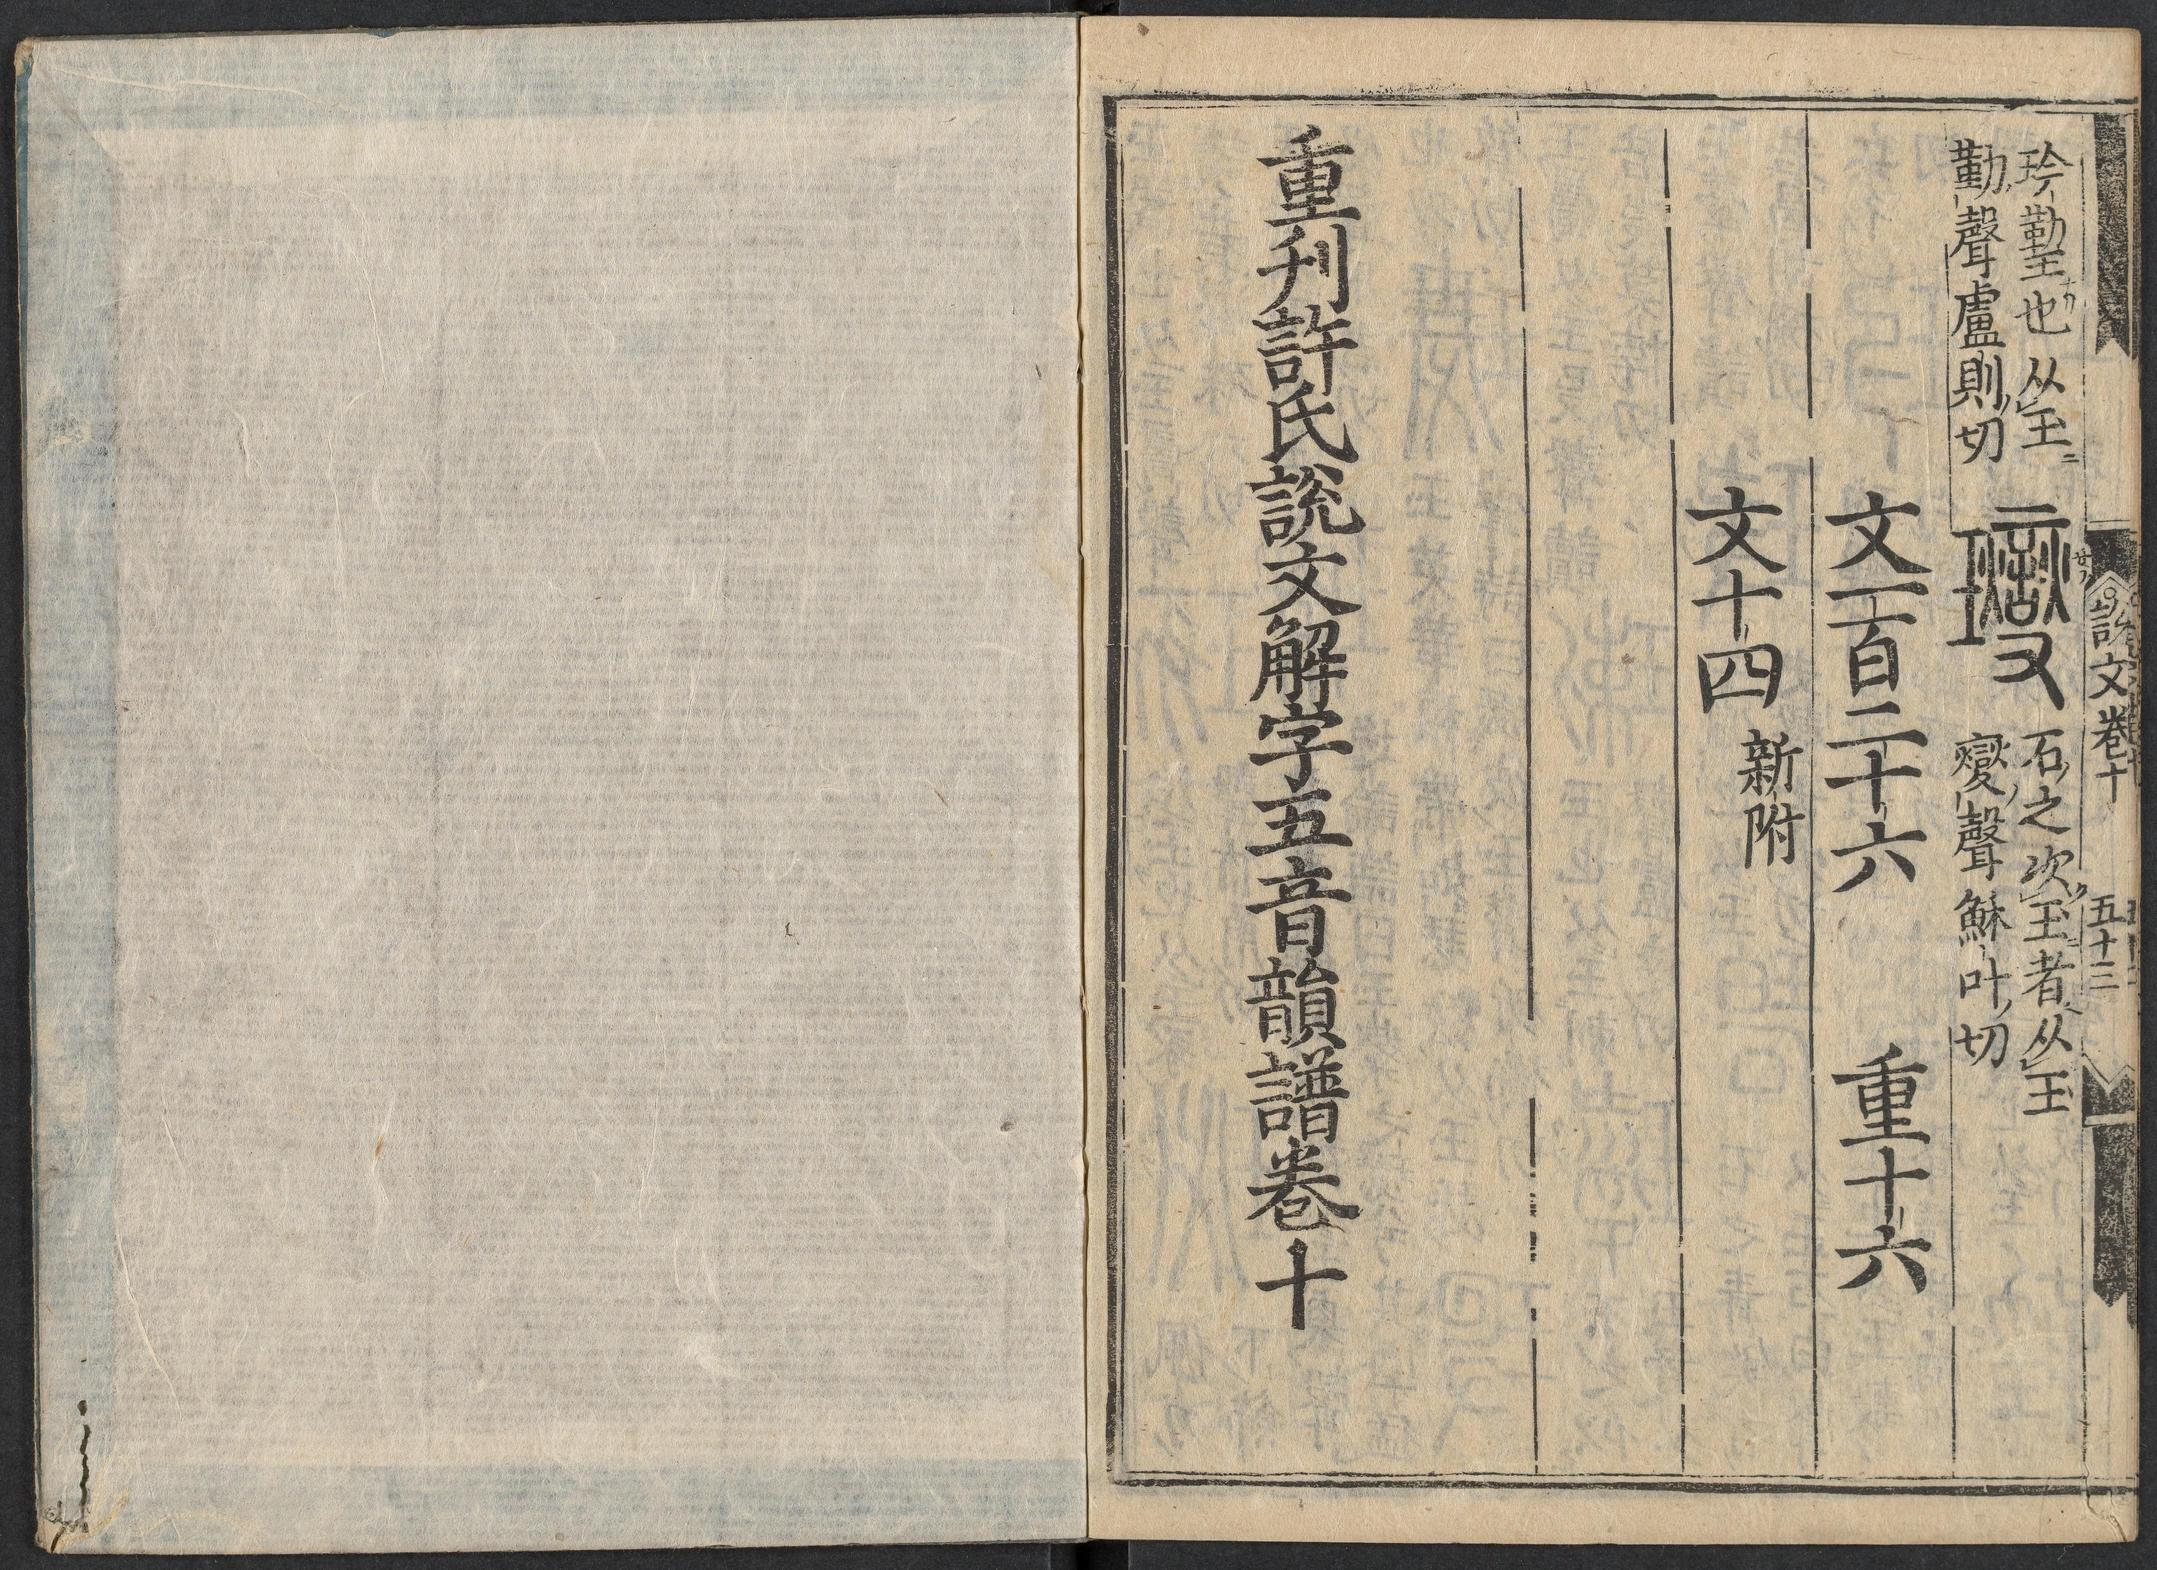 玲
也从玉
勒聲盧則切
石之次玉者从玉
燮聲穌叶切
文一百二十六 重十六
文十四 新附
重刊許氏說文解字五音韻譜卷十
說文卷十 五十三